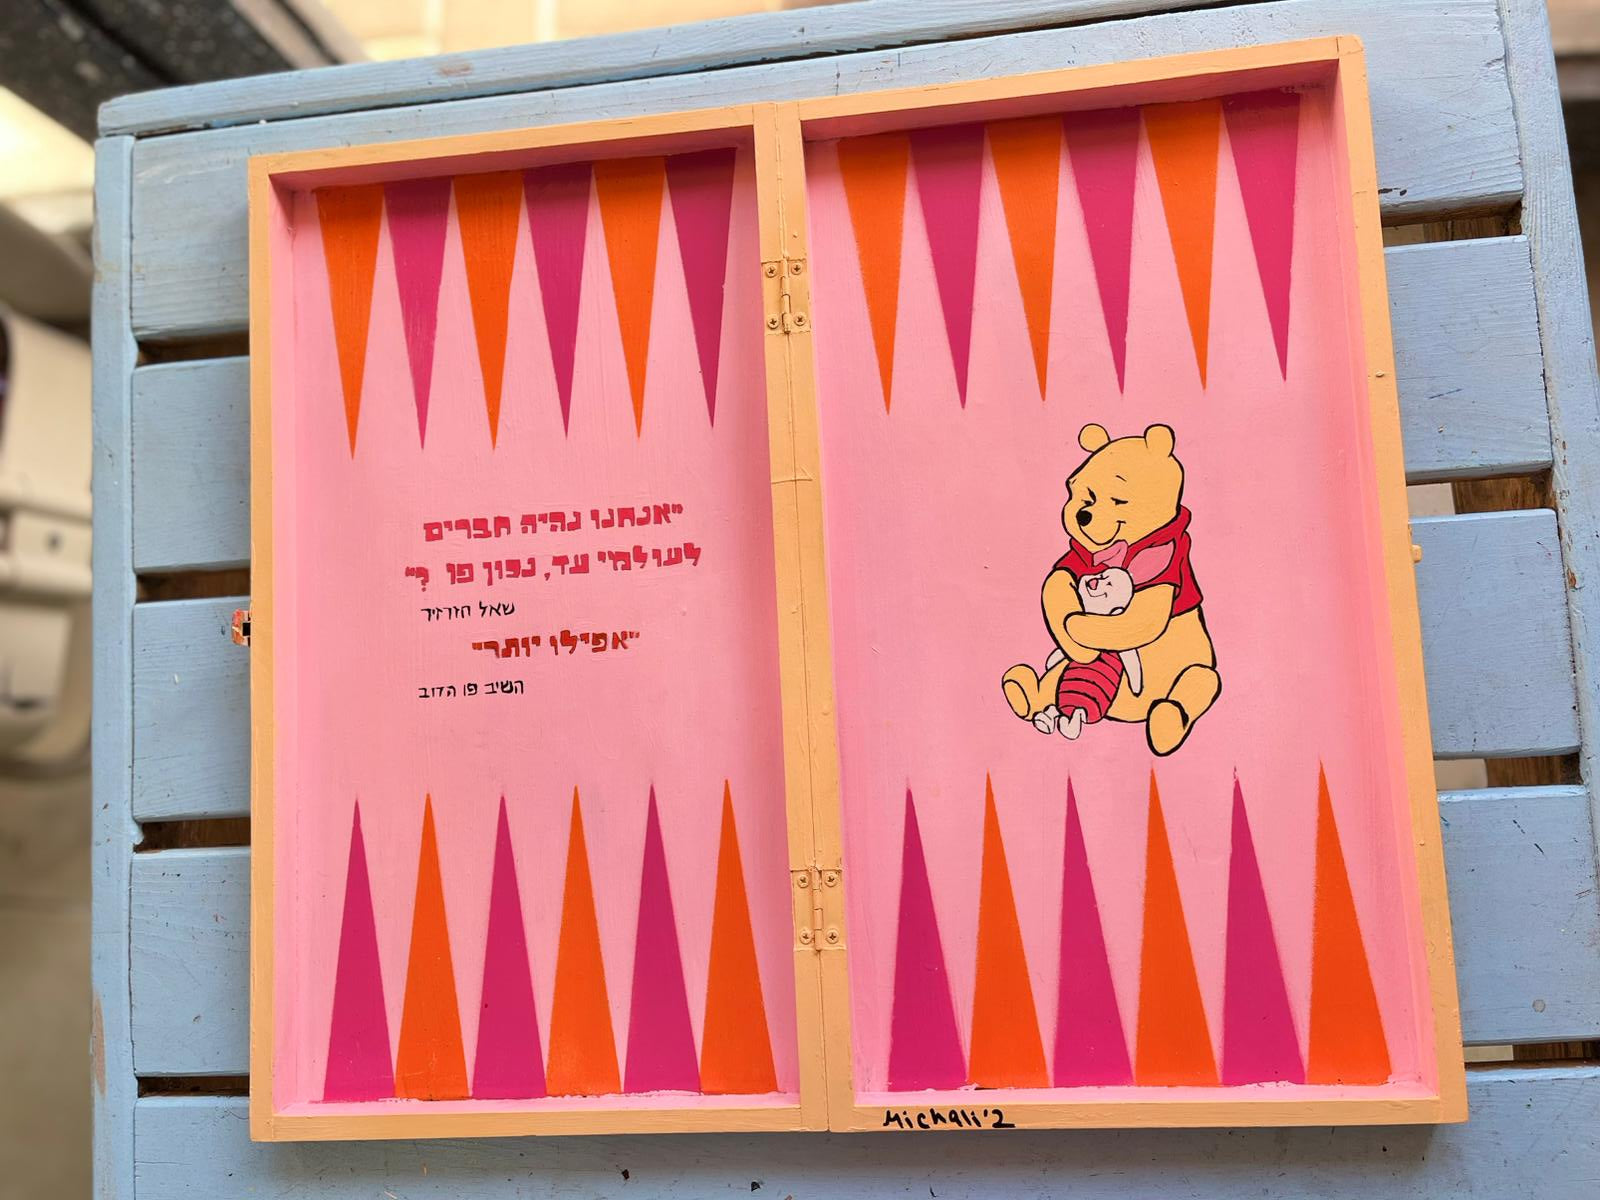 "אנחנו נהיה חברים
לעולמי עד, נכון פו ?"
שאל חזרזיר
"אפילו יותר"
השיב פו הדוב
Michali'2